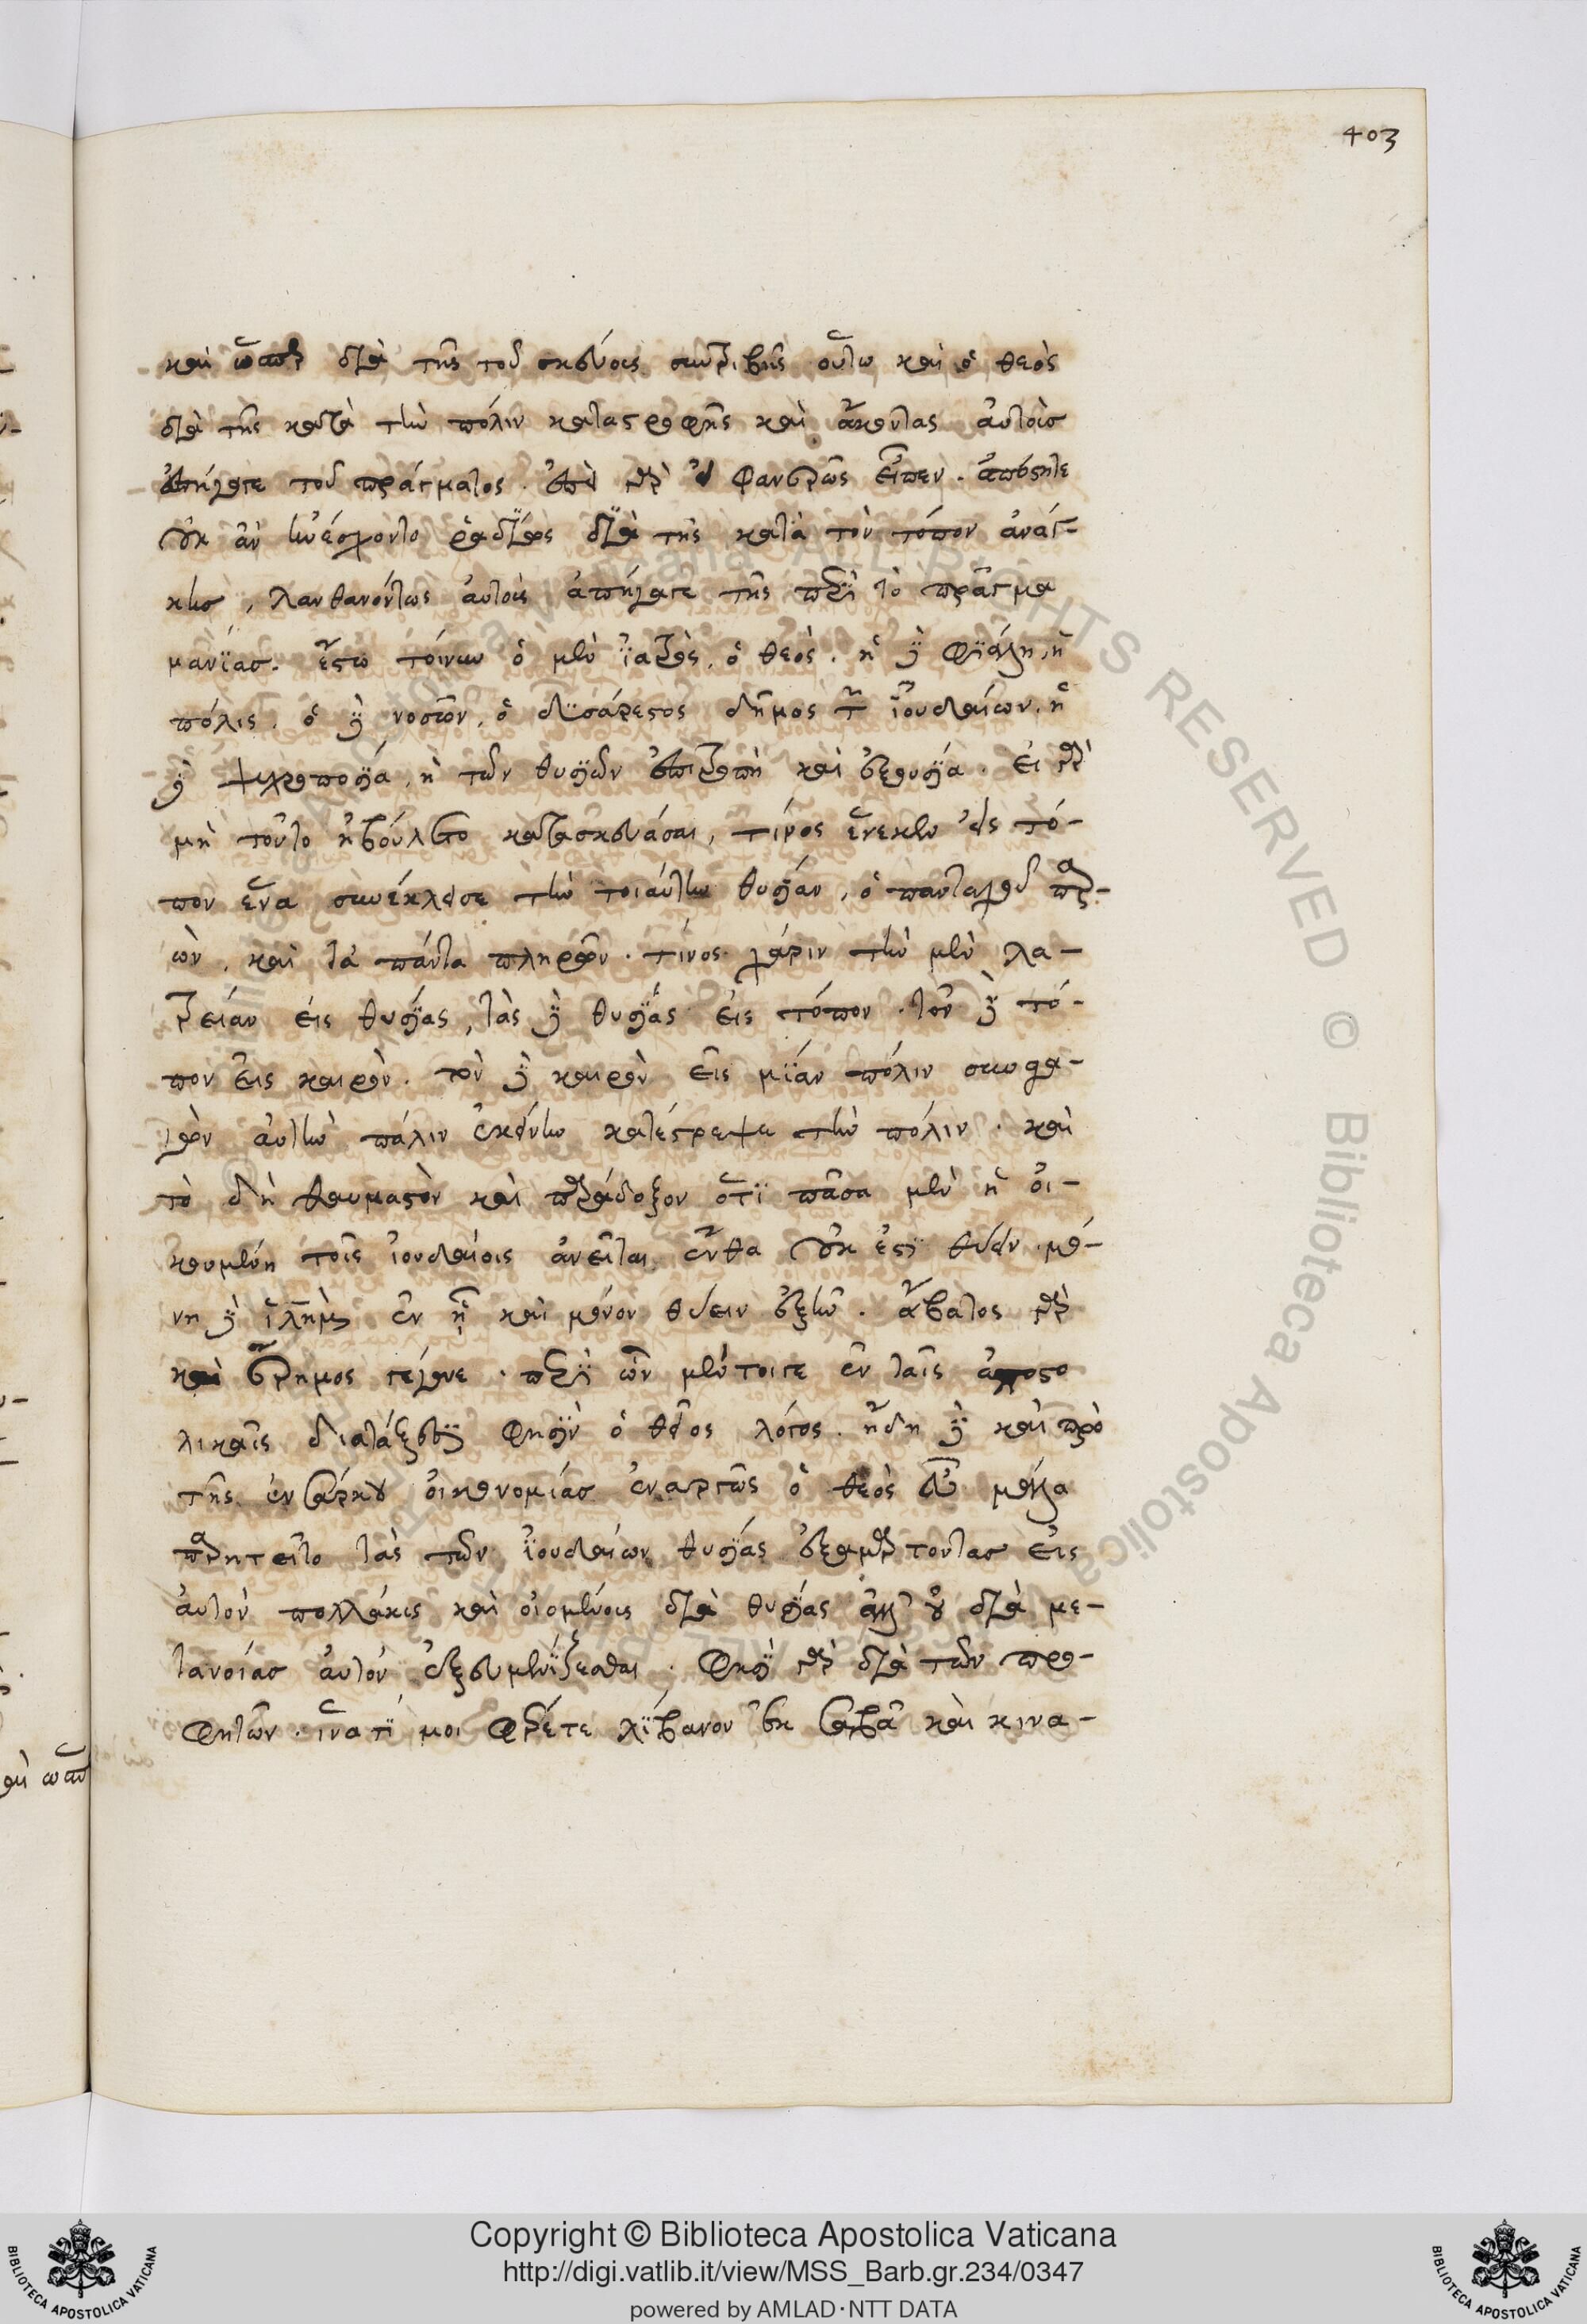 403
καὶ ὥσπερ διὰ τῆς τοῦ σκεύους συντριβῆς οὕτω καὶ ὁ θεὸς
διὰ τῆς κατὰ τὴν πόλιν καταστροφῆς καὶ ἄκοντας αὐτοὺσ
ἀπήγαγε τοῦ πράγματος. ἐπεὶ γὰρ εἰ φανερῶς εἶπεν. ἀπόστητε
οὐκ ἂν ἠνέσχοντο ῥαδΐως διὰ τῆς κατὰ τὸν τόπον ἀνάγ-
κησ, λανθανόντως αὐτοὺς ἀπήγαγε τῆς περὶ τὸ πρᾶγμα
μανΐασ. ἔστω τοίνυν ὁ μὲν ἰατρὸς, ὁ θεὸς. ἡ δὲ φϊάλη, ἡ
πόλις. ὁ δὲ νοσῶν, ὁ δϋσάρεστος δῆμος τῶν ἰουδαίων, ἡ
δὲ ψυχροποσία, ἡ τῶν θυσιῶν ἐπιτροπὴ καὶ ἐξουσία. εἰ γὰρ
μὴ τοῦτο ἠβούλετο κατασκευάσαι, τίνος ἕνεκεν εἰς τό-
πον ἕνα συνέκλεισε τὴν τοιαύτην θυσίαν, ὁ πανταχοῦ παρ-
ὼν, καὶ τὰ πάντα πληρῶν. τίνος χάριν τὴν μὲν λα-
τρείαν εἰς θυσίας, τὰς δὲ θυσίας εἰς τόπον. τὸν δὲ τό-
πον εἰς καιρὸν. τὸν δὲ καιρὸν εἰς μϊάν πόλιν συναγα-
γὼν αὐτὴν πάλιν ἐκείνην κατέστρεψε τὴν πόλιν. καὶ
τὸ δὴ θαυμαστὸν καὶ παράδοξον ὅτϊ πᾶσα μὲν ἡ οἰ-
κουμένη τοῖς ἰουδαίοις ἀνεῖται ἔνθα οὐκ ἔστϊ θύειν. μό-
νη δὲ ἱλημ ἐν ᾗ καὶ μόνον θύειν ἐξῆν. ἄβατος γὰρ
καὶ ἔρημος γέγονε. περὶ ὧν μέντοιγε ἐν ταῖς ἀποστο
λικαῖς διατάξεσϊ φησὶν ὁ θεῖος λόγος. ἤδη δὲ καὶ πρὸ
τῆς ἐνσάρκου οἰκονομίας ἐναργῶς ὁ θεὸς μάλα
παρῃτεῖτο τὰς τῶν ἰουδαίων θυσίας ἐξαμαρτοντασ εἰς
αὐτὸν πολλάκις καὶ οἰομένοις διὰ θυσίας ἀλλ' οὐ διὰ με-
τανοίασ αὐτὸν ἐξευμενΐζεσθαι. φησὶ γὰρ διὰ τῶν προ-
φητῶν. ἵνατΐ μοι φέρετε λΐβανον ἐκ σαβᾶ καὶ κινα-
Copyright © Biblioteca Apostolica Vaticana
http://digi.vatlib.it/view/MSS_Barb.gr.234/0347
powered by AMLAD·NTT DATA